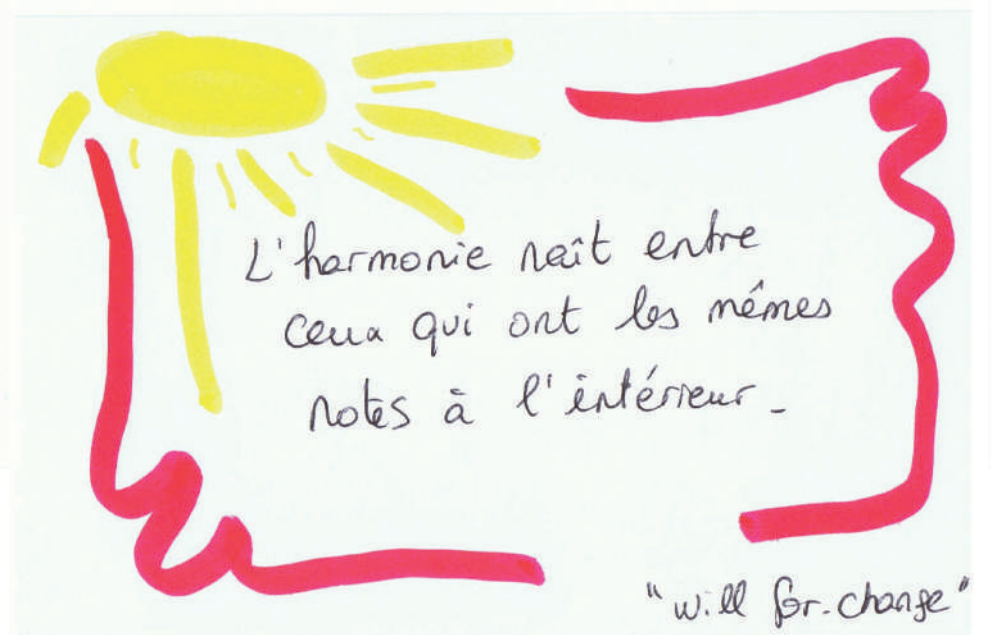 L'harmonie naît entre
ceux qui ont les mêmes
notes à l'intérieur_
"will for.change"